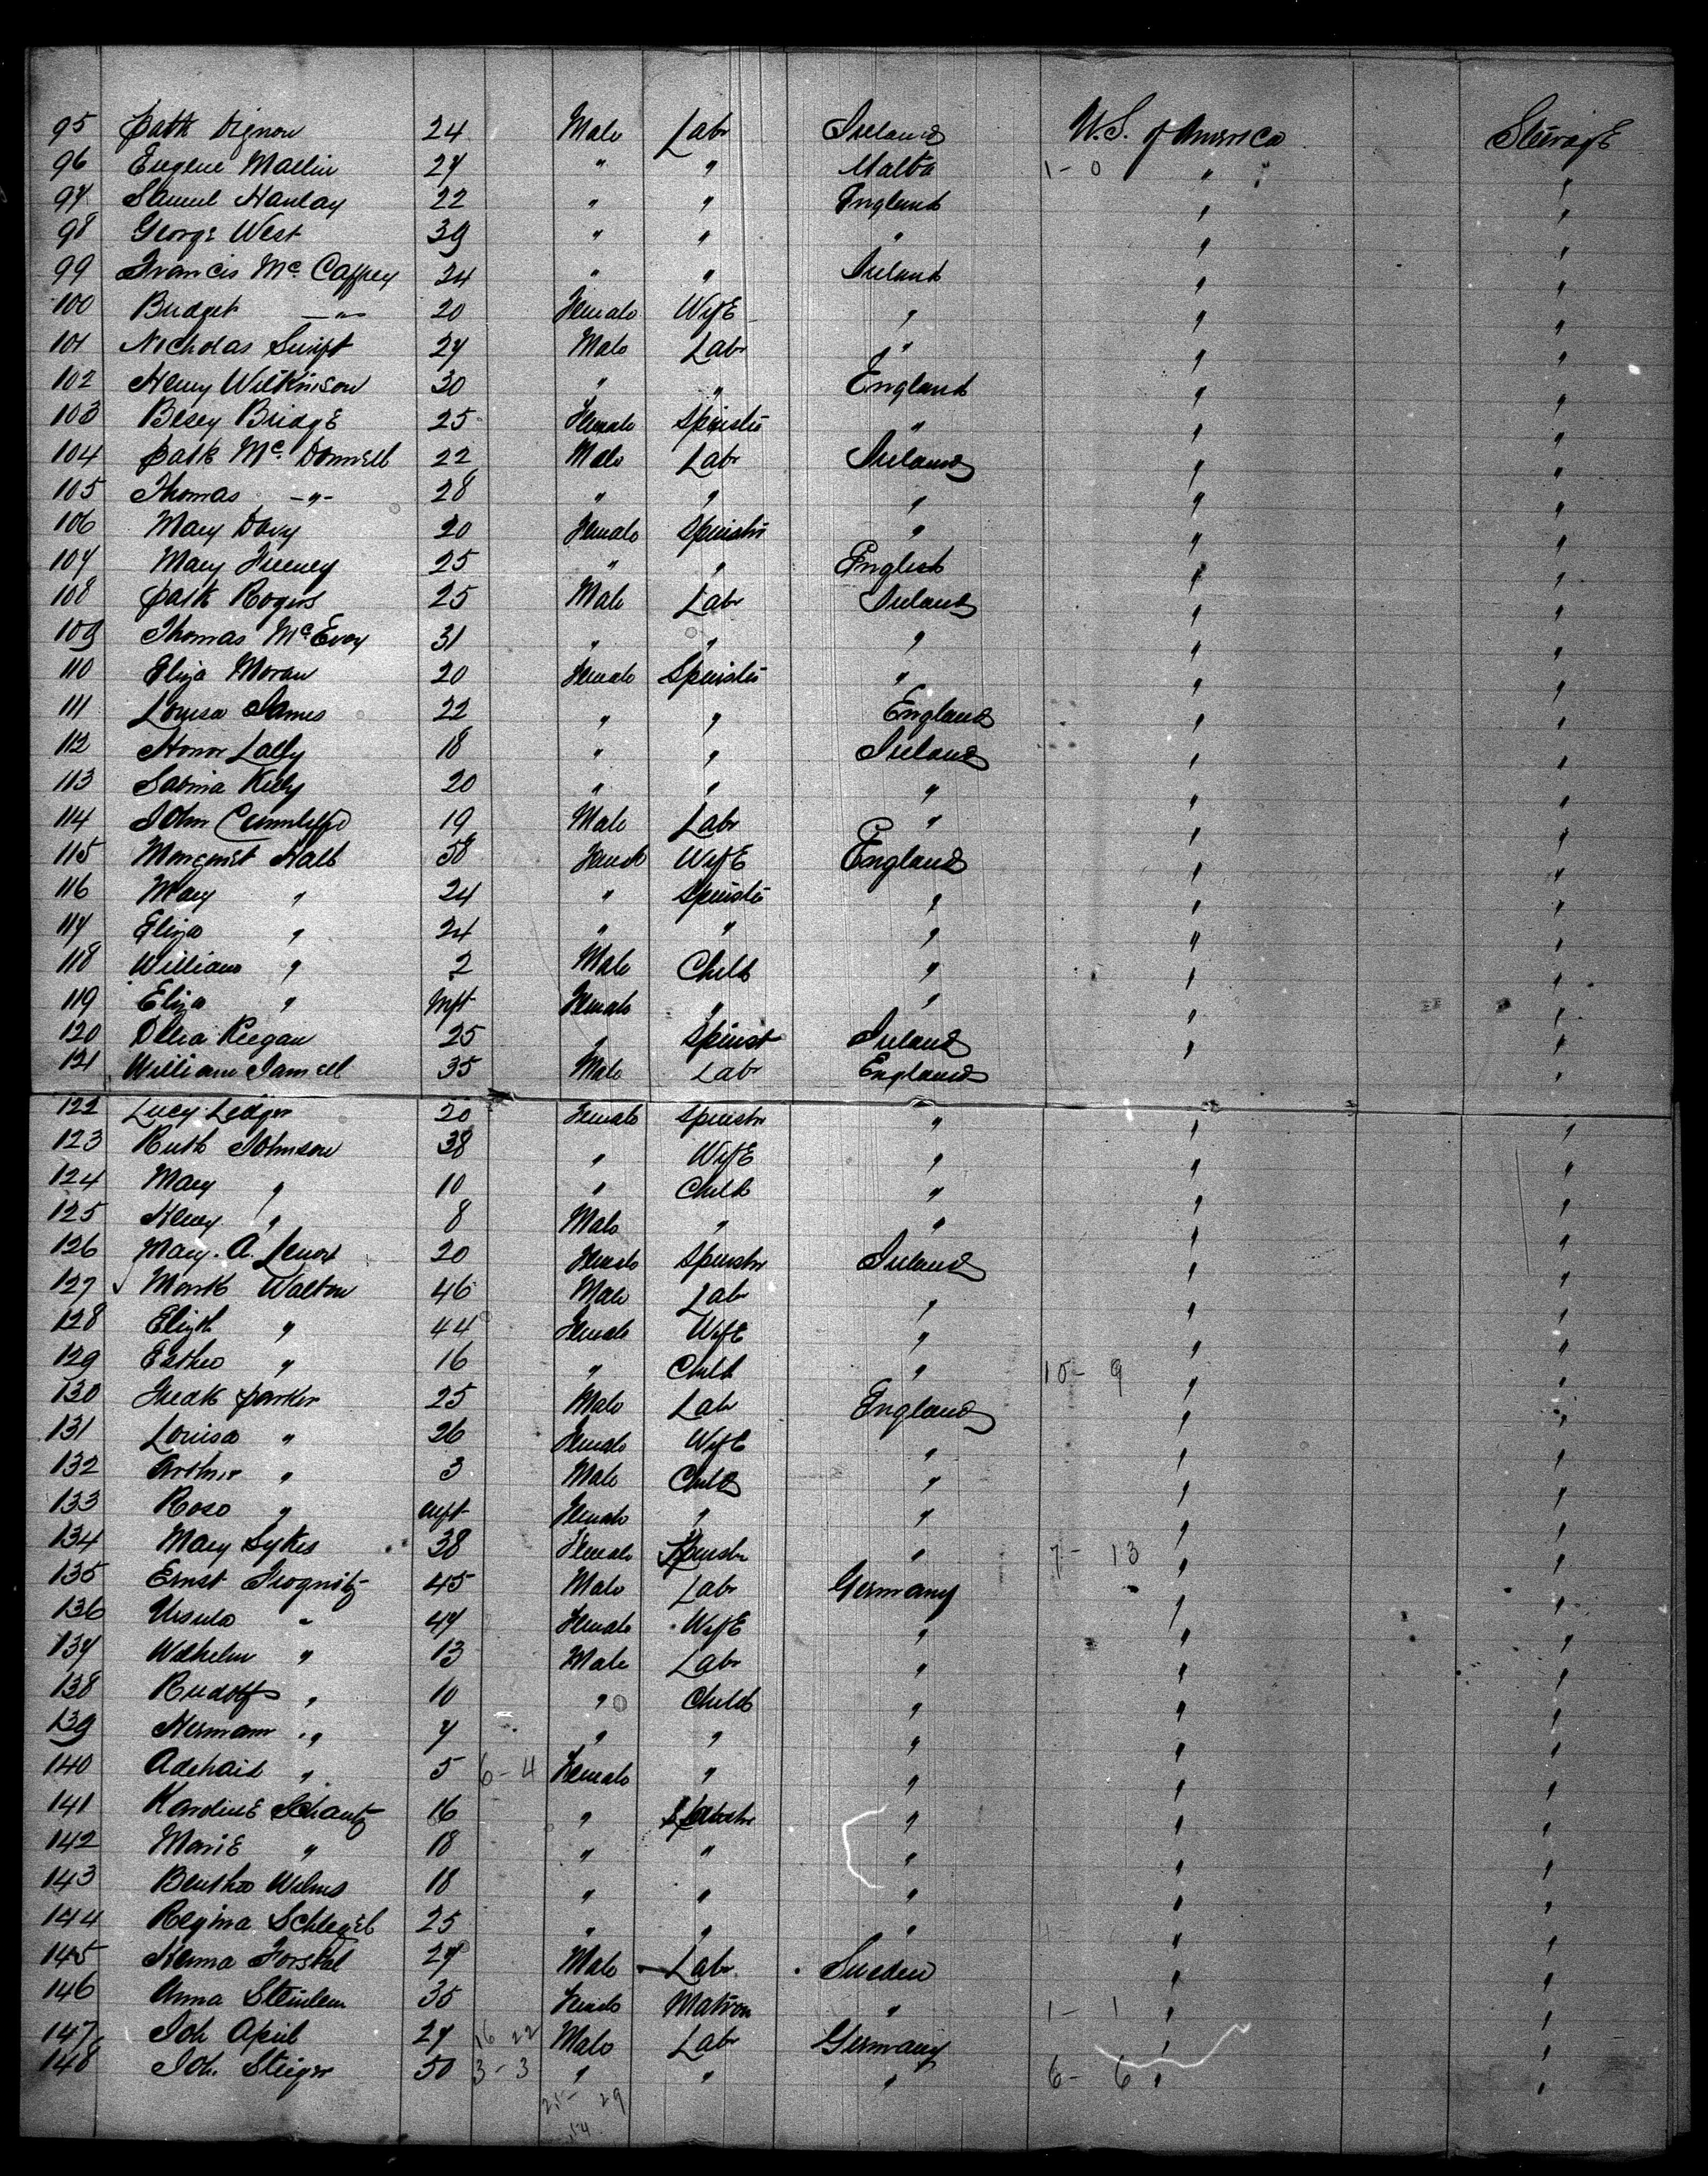 95 Patk Dignon 24 Male Labr Ireland U.S. of America Steerage
96 Eugene Mallin 27 " " Malta 1 - 0 " "
97 Samuel Hanlay 22 " " England " "
98 George West 39 " " " " "
99 Francis McCaffrey 24 " " Ireland " "
100 Bridget —"— 20 Female Wife " " "
101 Nicholas Swift 27 Male Labr " " "
102 Henry Wilkinson 30 " " England " "
103 Besey Bridge 25 Female Spinstr " " "
104 Patk McDonnell 22 Male Labr Ireland " "
105 Thomas -"- 28 " " " " "
106 Mary Davy 20 Female Spinstr " " "
107 Mary Freeney 25 " " English " "
108 Patk Rogers 25 Male Labr Ireland " "
109 Thomas McEvoy 31 " " " " "
110 Eliza Moran 20 Female Spinstr " " "
111 Louisa James 22 " " England " "
112 Honor Lally 18 " " Ireland " "
113 Sabina Kelly 20 " " " " "
114 John Cunnliffe 19 Male Labr " " "
115 Margaret Hall 58 Female Wife England " "
116 Mary " 24 " Spinstr " " "
117 Eliza " 24 " " " " "
118 William " 2 Male Child " " "
119 Eliza " Inft Female " " " "
120 Delia Keegan 25 " Spinst Ireland " "
121 William Jamell 35 Male Labr England "
122 Lucy Ledger 20 Female Spinstr " " "
123 Ruth Johnson 38 " Wife " " "
124 Mary " 10 " Child " " "
125 Henry " 8 Male " " " "
126 Mary. A. Lenox 20 Female Spinstr Ireland " "
127 Mark Walton 46 Male Labr " " "
128 Elizth " 44 Female Wife " " "
129 Esther " 16 " Child " 10 - 9 " "
130 Fredk Parker 25 Male Labr England " "
131 Louisa " 26 Female Wife " " "
132 Arthur " 3 Male Child " " "
133 Rose " Inft Female " " " "
134 Mary Sykes 38 Female Spinstr " 7 - 13 " "
135 Ernst Frognitz 45 Male Labr Germany " "
136 Ursula " 47 Female Wife " " "
137 Wilhelm " 13 Male Labr " " "
138 Rudolf " 10 " Child " " "
139 Hermann " 7 " " " " "
140 Adehaid " 5 6 - 4 Female " " " "
141 Karoline Schantz 16 " Spinstr " " "
142 Marie " 18 " " " " "
143 Bertha Wilms 18 " " " " "
144 Regina Schlegel 25 " " " " "
145 Herma Forskal 27 Male Labr Sweden " "
146 Anna Steinlem 35 Female Matron " 1 - 1 " "
147 Joh April 27 16 22 Male Labr Germany " "
148 Joh. Steiger 50 3 - 3 " " " 6 - 6 " "
25 - 29
54